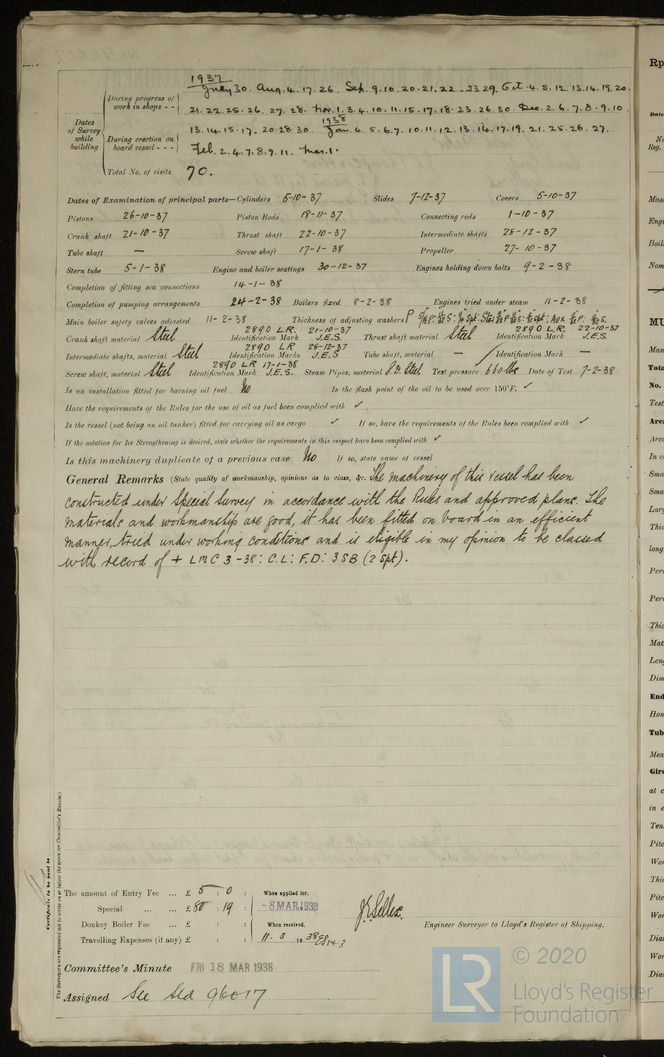 1937
July 30. Aug. 4. 17. 26. Sep. 9. 10. 20. 21. 22. 23. 29. Oct. 4. 5. 12. 13. 14. 19. 20.
During progress of work in shops - -
21. 22. 25. 26. 27. 28. Nov. 1. 3. 4. 10. 11. 15. 17. 18. 23. 26. 30. Dec. 2. 6. 7. 8. 9. 10.
1938
Dates of Survey while building
13. 14. 15. 17. 20. 28. 30. Jan. 4. 5. 6. 7. 10. 11. 12. 13. 14. 17. 19. 21. 25. 26. 27.
During erection on board vessel - - -
Feb. 2. 4. 7. 8. 9. 11. Mar. 1.
Total No. of visits 70.
Dates of Examination of principal parts—Cylinders 5-10-37 Slides 7-12-37 Covers 5-10-37
Pistons 26-10-37 Piston Rods 18-11-37 Connecting rods 1-10-37
Crank shaft 21-10-37 Thrust shaft 22-10-37 Intermediate shafts 28-12-37
Tube shaft — Screw shaft 17-1-38 Propeller 27-10-37
Stern tube 5-1-38 Engine and boiler seatings 30-12-37 Engines holding down bolts 9-2-38
Completion of fitting sea connections 14-1-38
Completion of pumping arrangements 24-2-38 Boilers fixed 8-2-38 Engines tried under steam 11-2-38
Main boiler safety valves adjusted 11-2-38 Thickness of adjusting washers
Crank shaft material Steel Identification Mark 2890 L.R. 21-10-37 J.E.S. Thrust shaft material Steel Identification Mark 2890 L.R. 22-10-37 J.E.S.
Intermediate shafts, material Steel Identification Marks 2890 LR 28-12-37 J.E.S Tube shaft, material — Identification Mark —
Screw shaft, material Steel Identification Mark 2890 LR 17-1-38 J.E.S. Steam Pipes, material S.D. Steel Test pressure 660 lbs Date of Test 7-2-38
Is an installation fitted for burning oil fuel No Is the flash point of the oil to be used over 150°F. ✓
Have the requirements of the Rules for the use of oil as fuel been complied with ✓
Is the vessel (not being an oil tanker) fitted for carrying oil as cargo ✓ If so, have the requirements of the Rules been complied with ✓
If the notation for Ice Strengthening is desired, state whether the requirements in this respect have been complied with ✓
Is this machinery duplicate of a previous case No If so, state name of vessel
General Remarks (State quality of workmanship, opinions as to class, &c. The machinery of this vessel has been
constructed under Special Survey in accordance with the Rules and approved plans. The
materials and workmanship are good, it has been fitted on board in an efficient
manner, tried under working conditions and is eligible in my opinion to be classed
with record of + LMC 3-38: C.L: F.D: 3SB (2 Spt).
Certificate to be sent to
The Surveyors are requested not to write on or below the space for Committee's Minute.
The amount of Entry Fee ... £ 5 : 0 : When applied for,
Special ... ... £ 80 : 19 : -8 MAR 1938
Donkey Boiler Fee ... £ : : When received,
Travelling Expenses (if any) £ : : 11. 3 19 38
Engineer Surveyor to Lloyd's Register of Shipping.
Committee's Minute FRI 18 MAR 1938
Assigned See Sld 96017
LR
© 2020
Lloyd's Register
Foundation